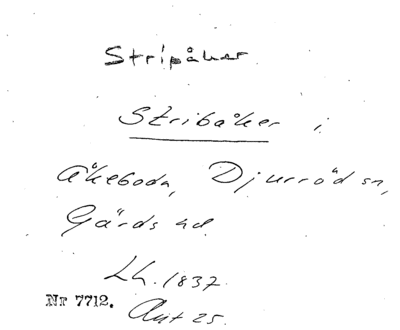 Stripåker
Stribåker i
Åkeboda, Djurröd sn,
Gärds hd.
Lh. 1837.
Nr 7712.
Akt 25.